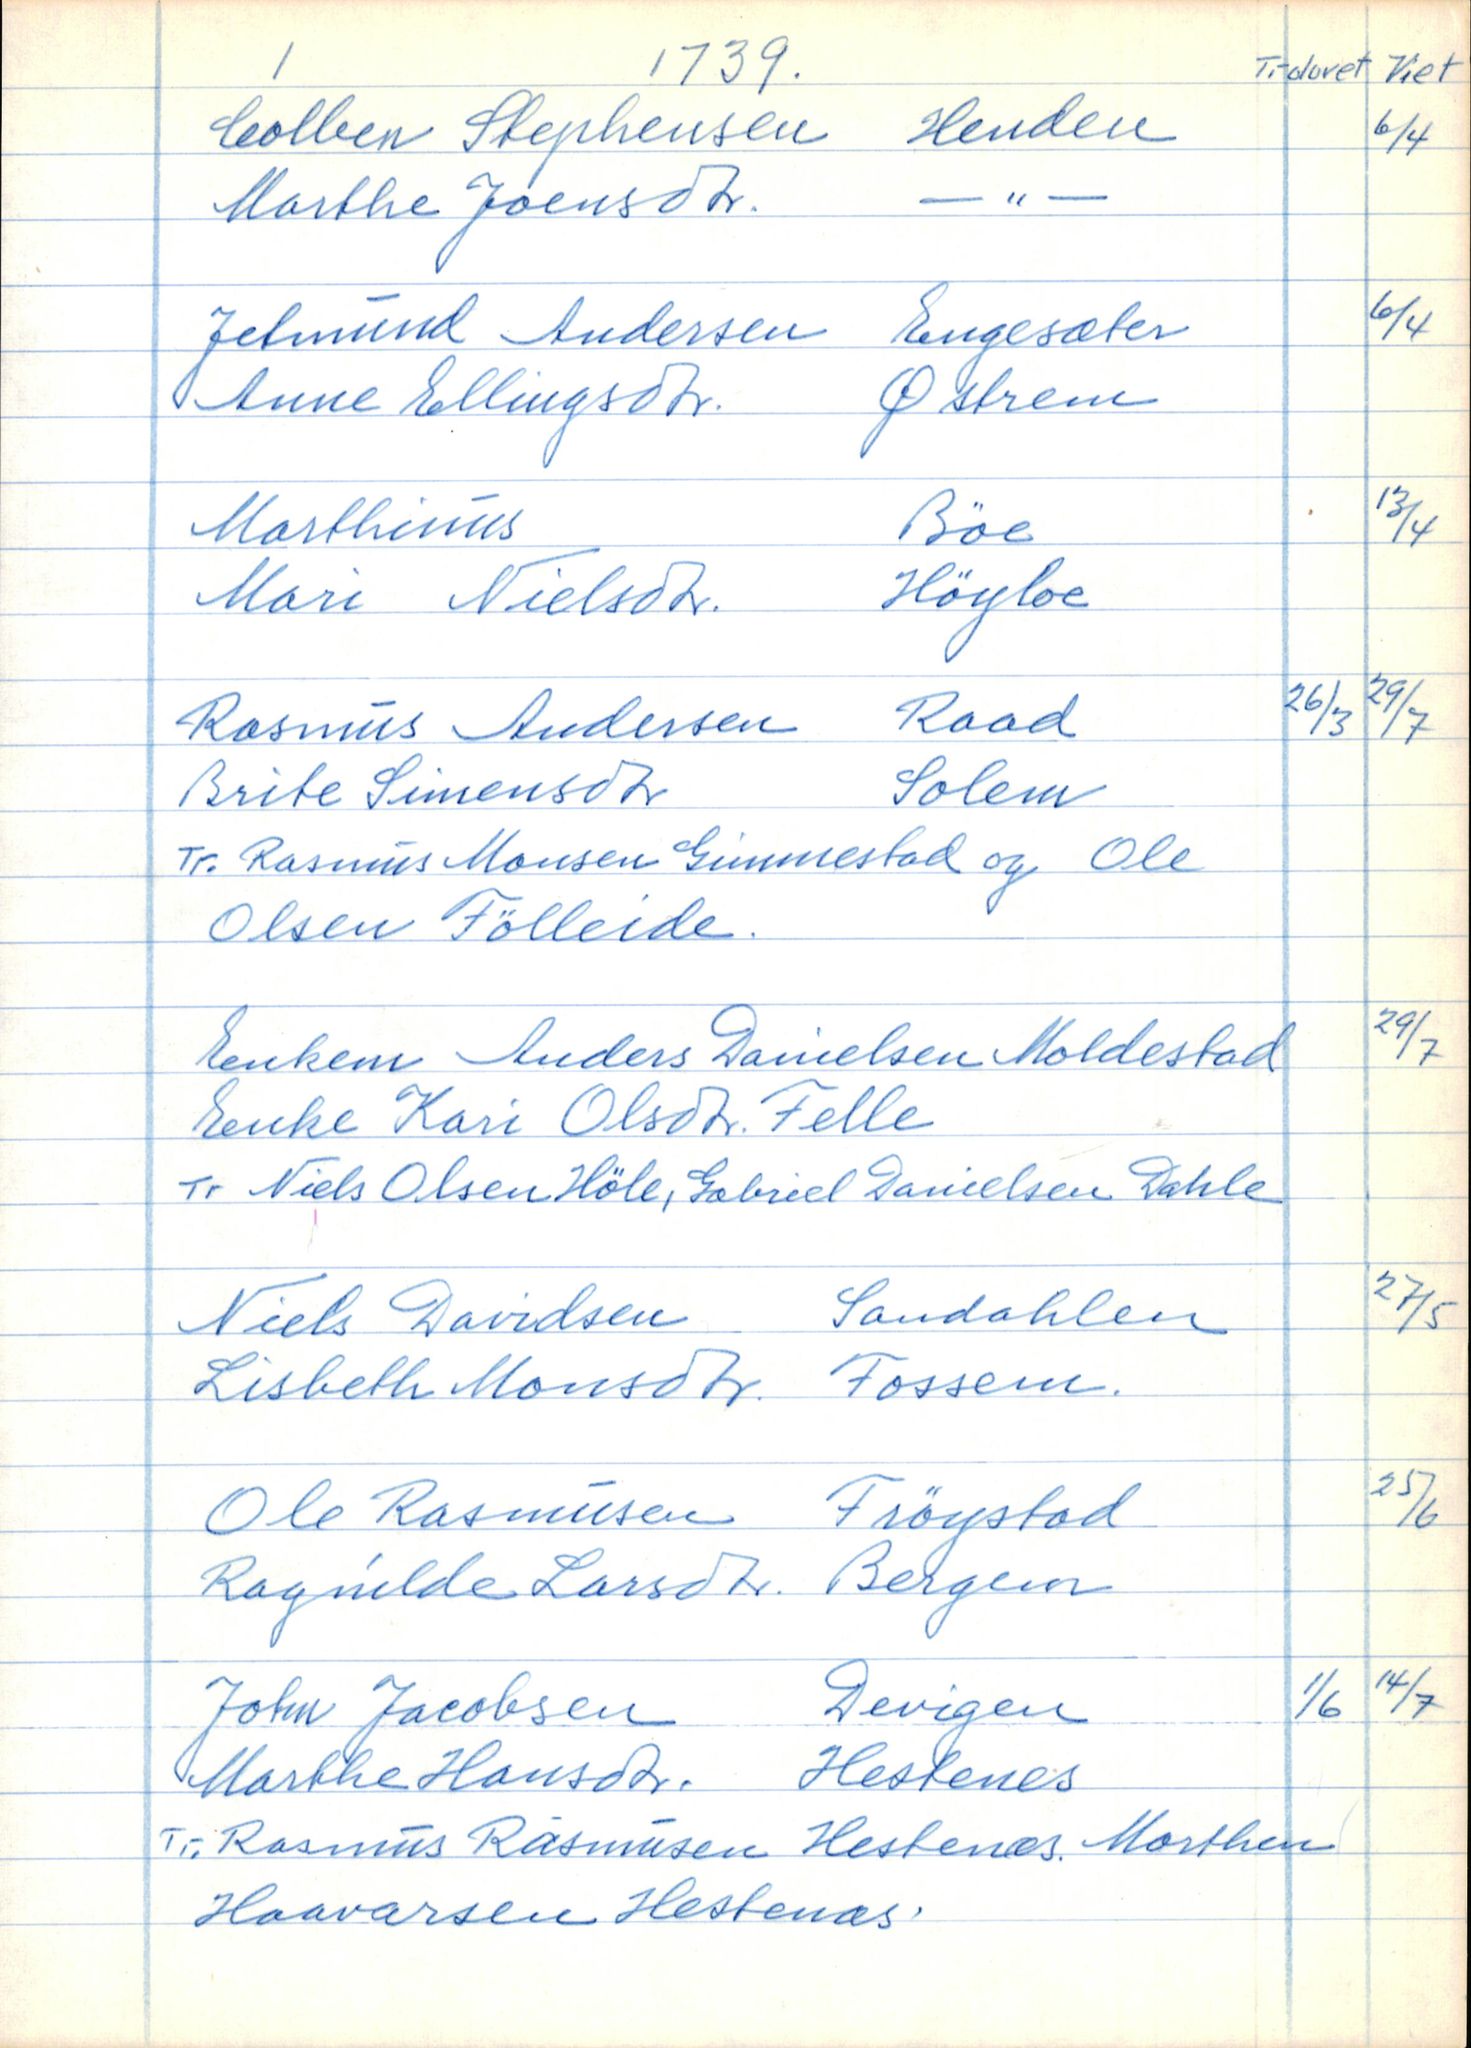 1 1739. Tr-lovet Viet
Colben Stephensen Henden 6/4
Marthe Joensdtr. — " —
Jetmund Andersen Engesæter 6/4
Anne Ellingsdtr. Østrem
Marthinus Böe 13/4
Mari Nielsdtr. Höyloe
Rasmus Andersen Raad 26/3 29/7
Brite Simensdtr Solem
Tr. Rasmus Monsen Gimmestad og Ole
Olsen Fölleide.
Enkem Anders Danielsen Moldestad 29/7
Enke Kari Olsdtr. Felle
Tr Niels Olsen Höle, Gabriel Danielsen Dahle
Niels Davidsen Sandahlen 27/5
Lisbeth Monsdtr. Fossem.
Ole Rasmusen Fröystad 25/6
Ragnilde Larsdtr. Bergem
John Jacobsen Devigen 1/6 14/7
Marthe Hansdtr. Hestenes
Tr. Rasmus Rasmusen Hestenæs. Morthen
Haavarsen Hestenæs.